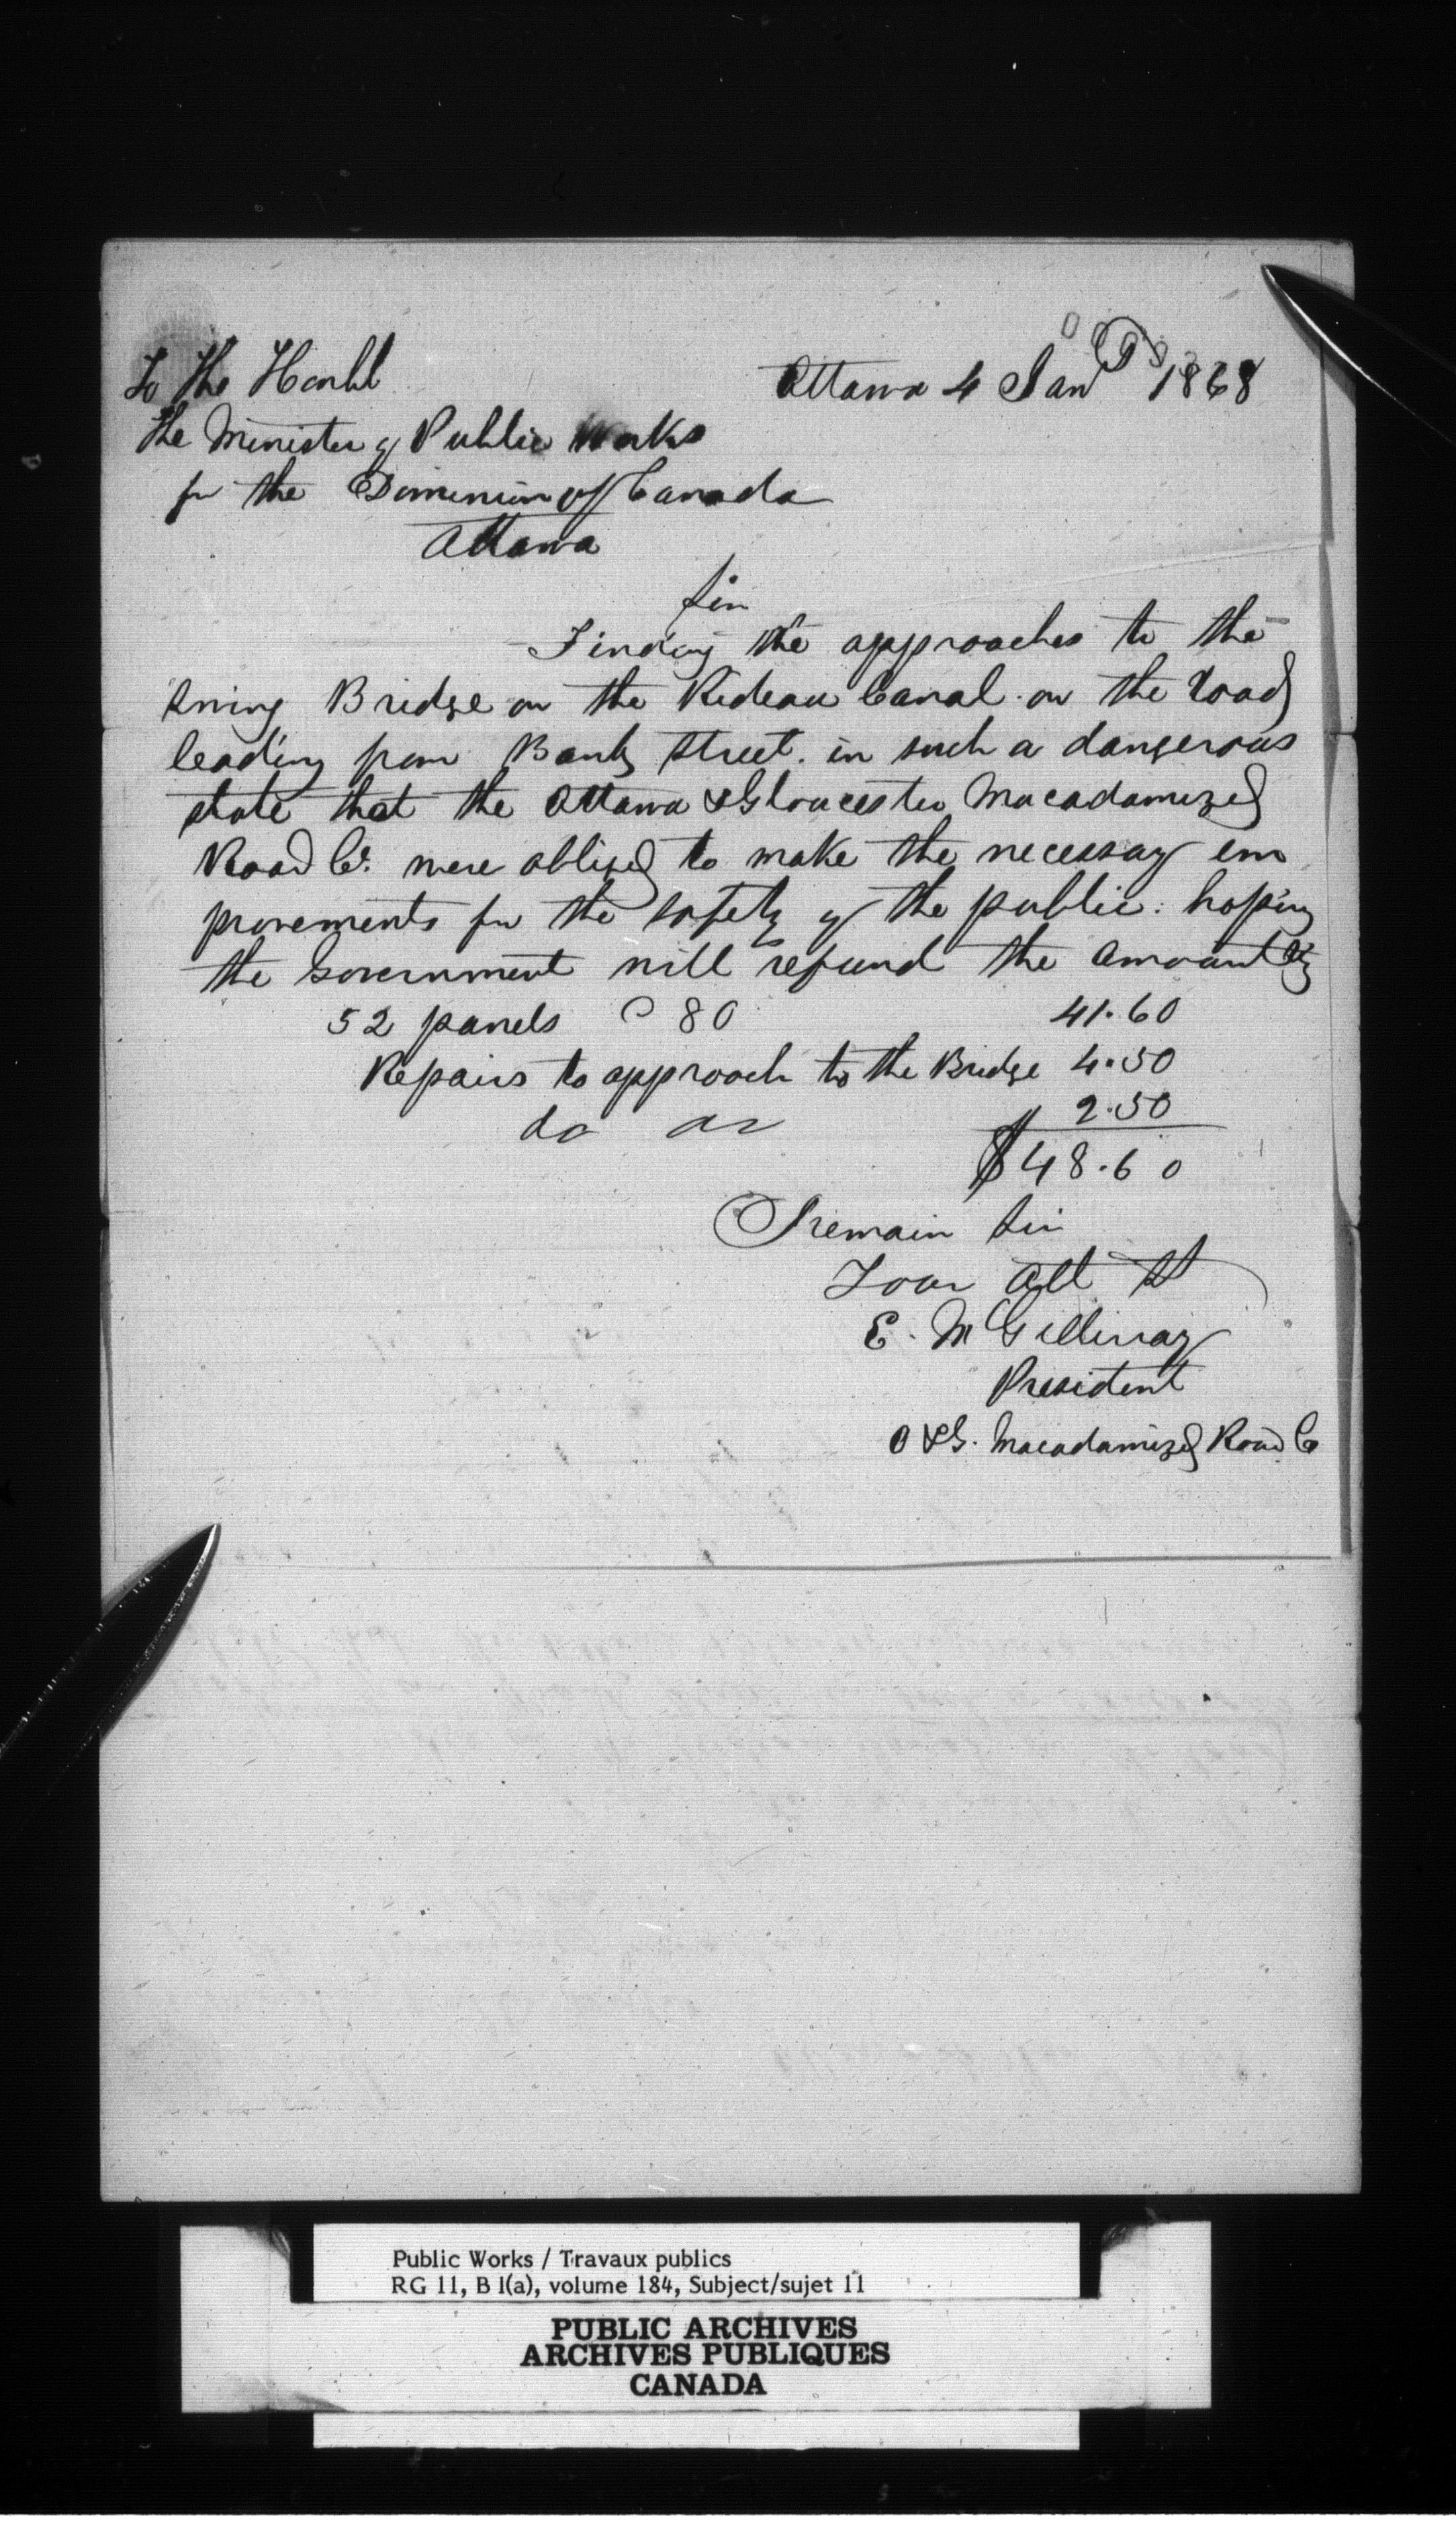 To the Honbl
Ottawa 4 Jany 1868
The Minister of Public Works
for the Dominion of Canada
Ottawa
Sir
Finding the approaches to the
Swing Bridge on the Rideau Canal on the Road
leading from Bank Street. in such a dangerous
state that the Ottawa & Gloucester Macadamized
Road Co. were obliged to make the necessary em
provements for the safety of the public: hoping
the Government will refund the amount
52 panels @ 80 41.60
Repairs to approach to the Bridge 4.50
do do 2.50
$48.60
I remain Sir
Your Obt St
E. McGillivray
President
O & G. Macadamized Road Co
Public Works / Travaux publics
RG 11, B 1(a), volume 184, Subject/sujet 11
PUBLIC ARCHIVES
ARCHIVES PUBLIQUES
CANADA